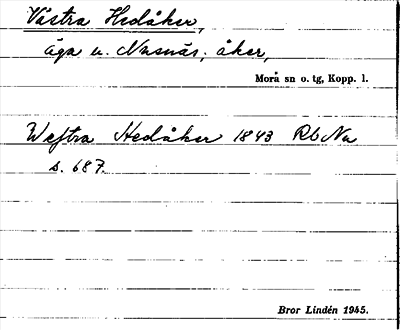 Västra Hedåker,
äga u. Nusnäs; åker,
Mora sn o. tg, Kopp. l.
Westra Hedåker 1843 Rb Nu
s. 687.
Bror Lindén 1945.